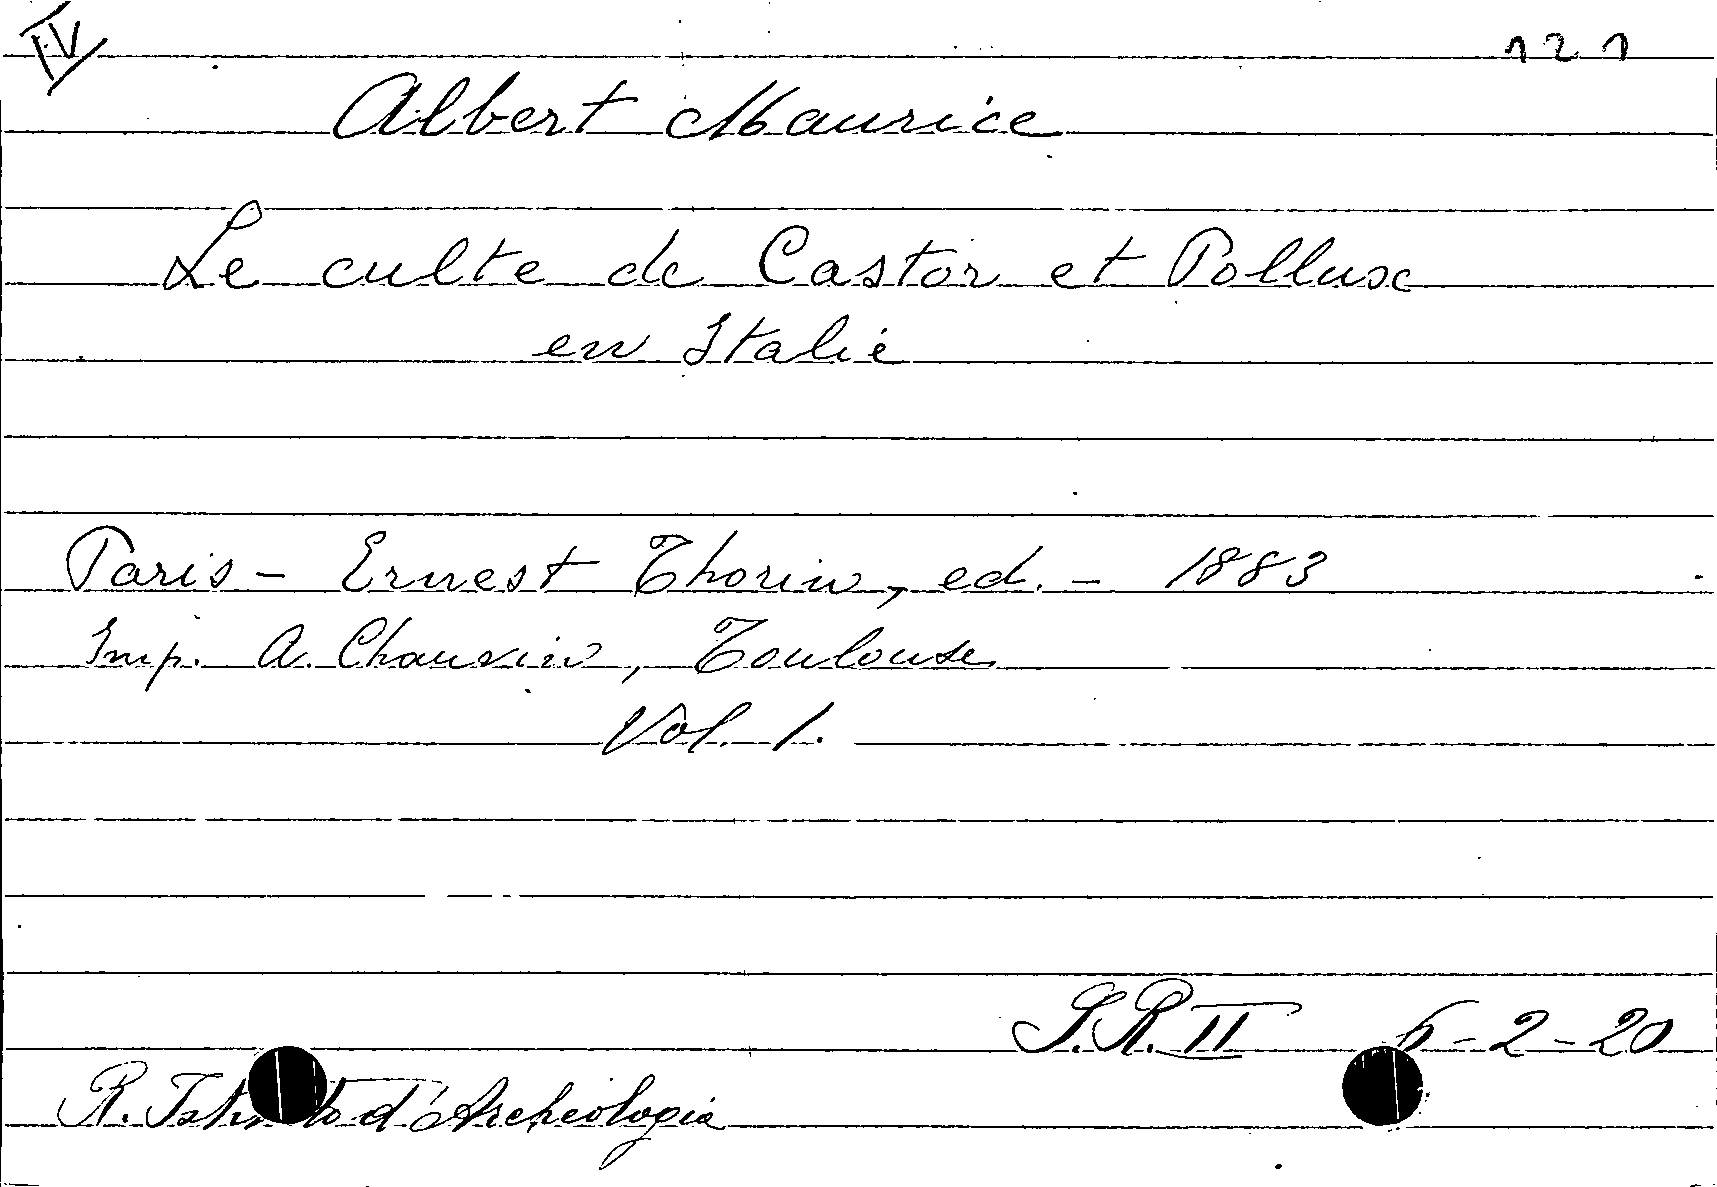 IV 121
Albert Maurice
Le culte de Castor et Pollux
en Italie
Paris - Ernest Thorin, ed. - 1883
Imp. A. Chauvin, Toulouse
Vol. 1.
S.R. II 6-2-20
R. d'Archeologia